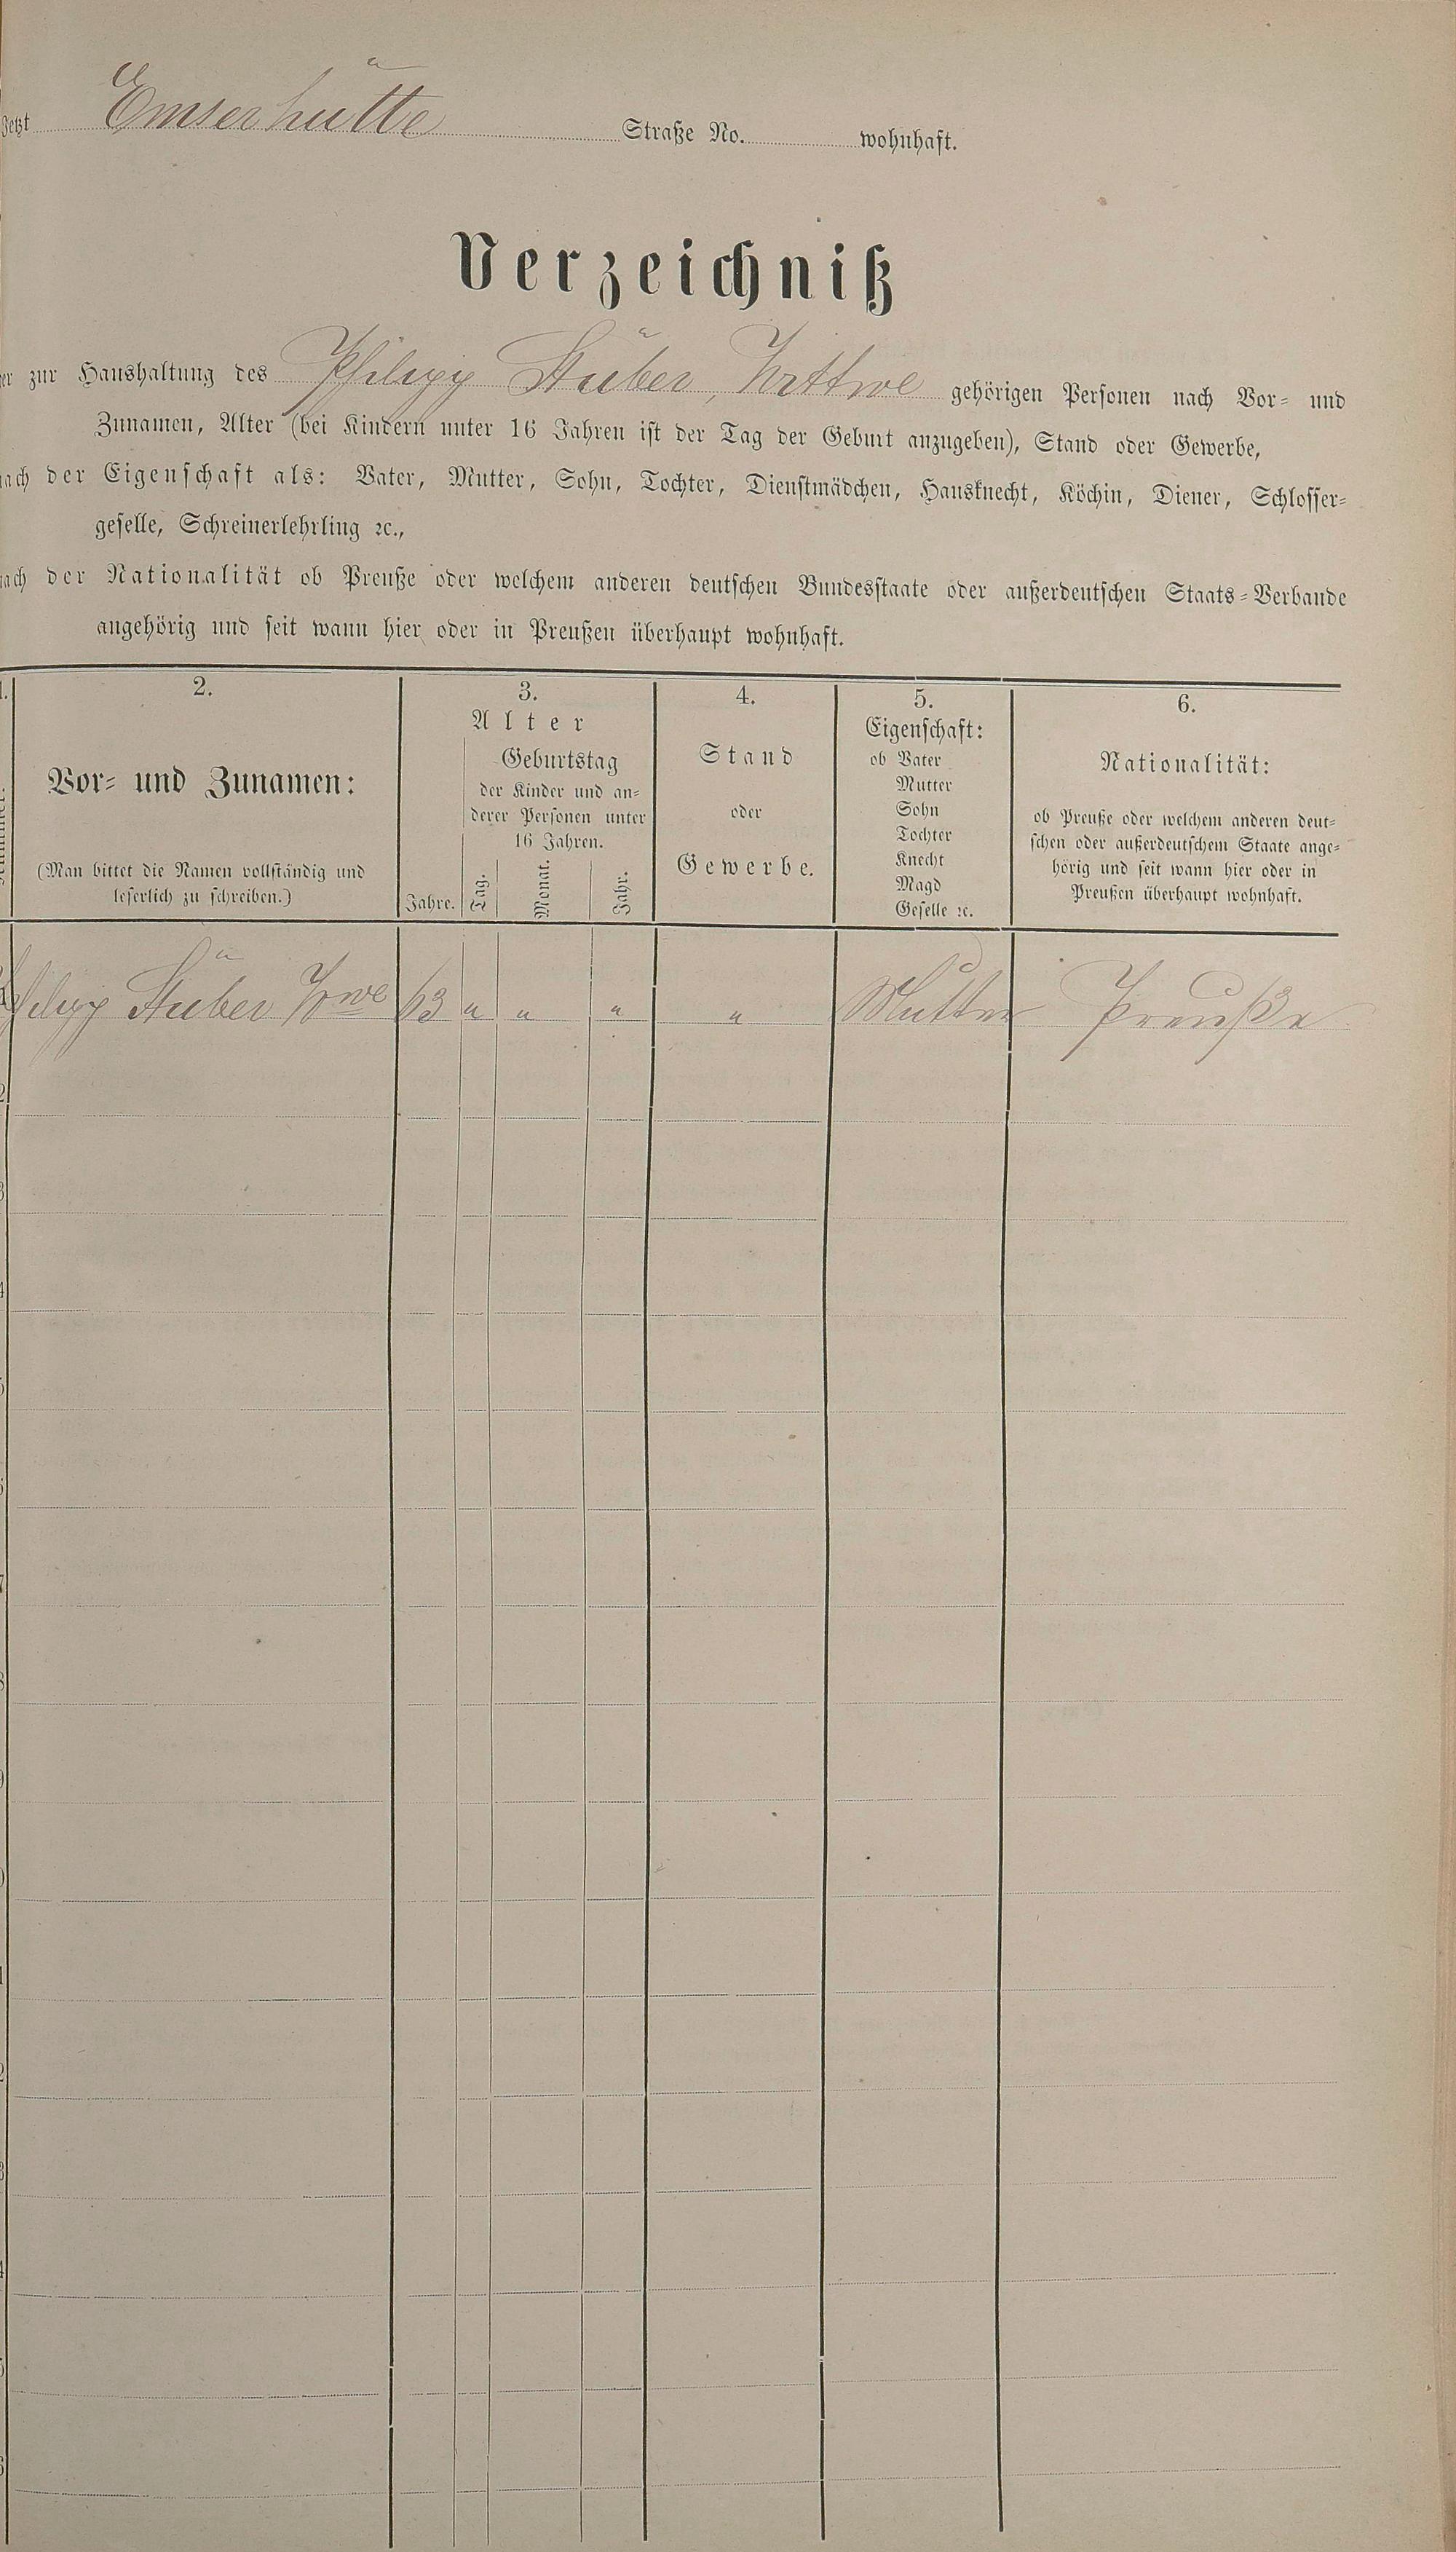 Jetzt Emserhütte Straße No. wohnhaft.
Verzeichniß
er zur Haushaltung des Philipp Stüber, Wittwe gehörigen Personen nach Vor- und
Zunamen, Alter (bei Kindern unter 16 Jahren ist der Tag der Geburt anzugeben), Stand oder Gewerbe,
nach der Eigenschaft als: Vater, Mutter, Sohn, Tochter, Dienstmädchen, Hausknecht, Köchin, Diener, Schlosser-
geselle, Schreinerlehrling ꝛc.,
nach der Nationalität ob Preuße oder welchem anderen deutschen Bundesstaate oder außerdeutschen Staats-Verbande
angehörig und seit wann hier oder in Preußen überhaupt wohnhaft.
1.
2.
Vor- und Zunamen:
(Man bittet die Namen vollständig und
leserlich zu schreiben.)
3.
Alter
Geburtstag
der Kinder und an-
derer Personen unter
16 Jahren.
Jahre. Tag. Monat. Jahr.
4.
Stand
oder
Gewerbe.
5.
Eigenschaft:
ob Vater
Mutter
Sohn
Tochter
Knecht
Magd
Geselle ꝛc.
6.
Nationalität:
ob Preuße oder welchem anderen deut-
schen oder außerdeutschem Staate ange-
hörig und seit wann hier oder in
Preußen überhaupt wohnhaft.
Philipp Stüber Wwe 63 " " " " Mutter Preuße